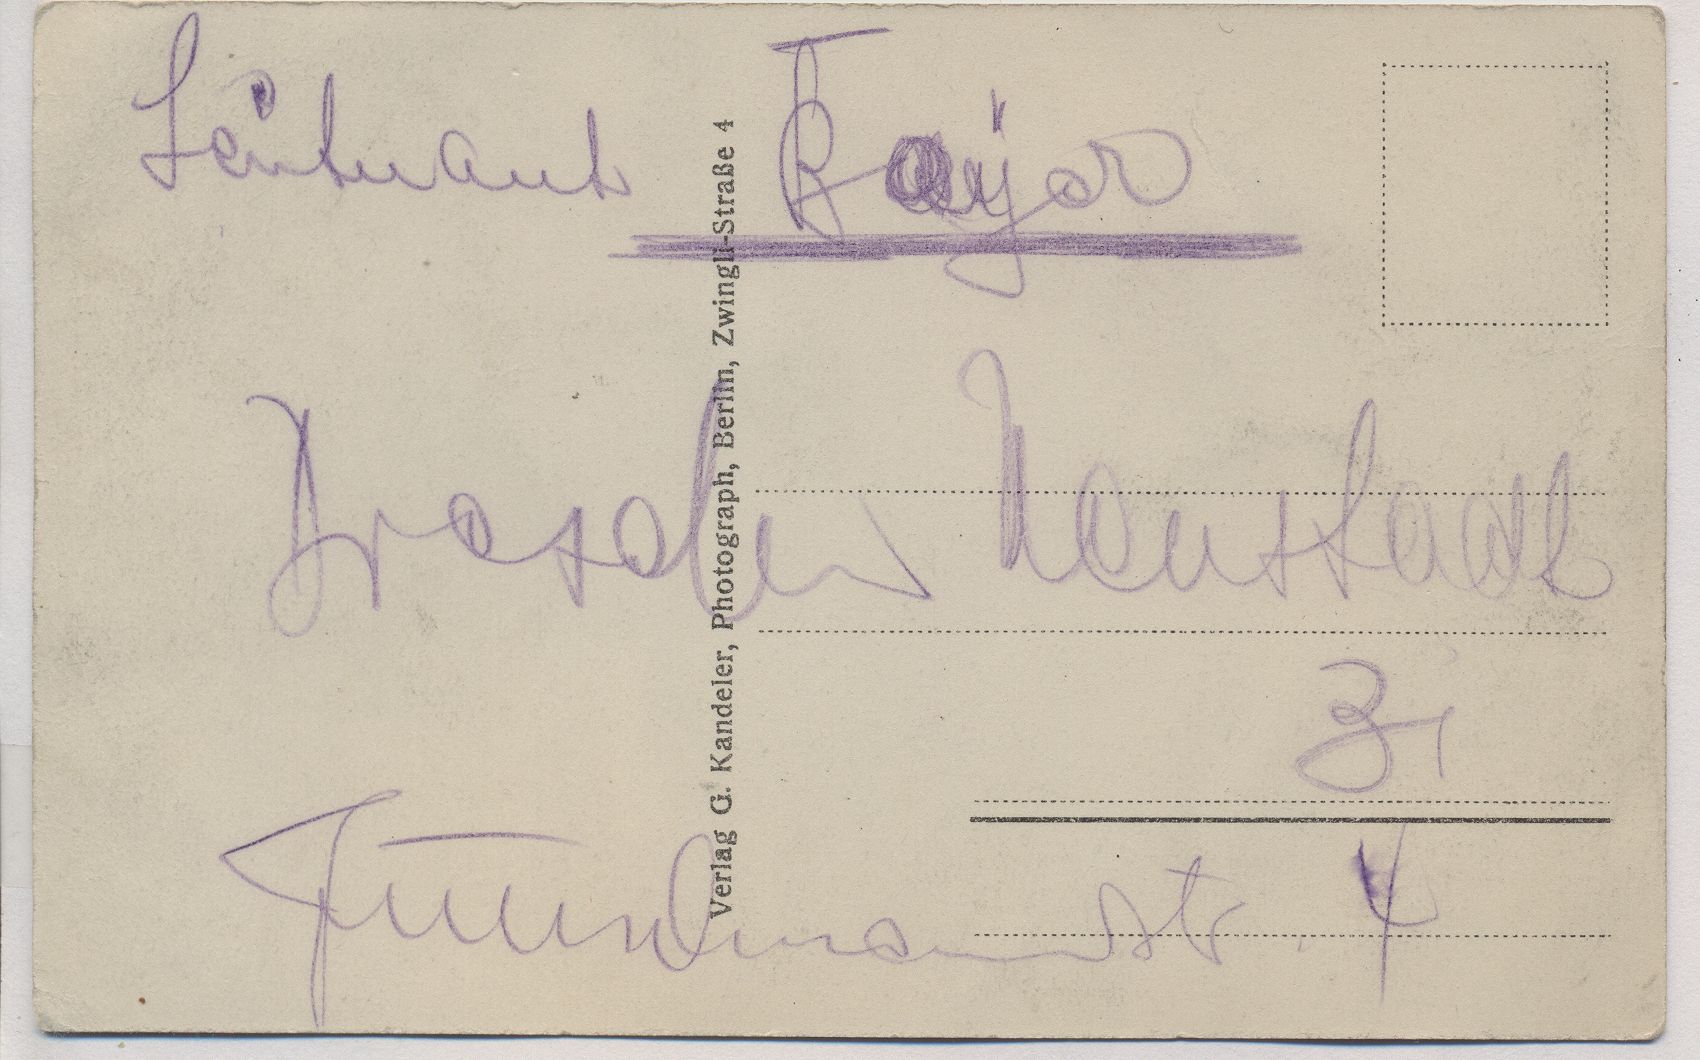 Leutnant Bayer
Dresden Neustadt
3
str. 4
Verlag G. Kandeler, Photograph, Berlin, Zwingli-Straße 4